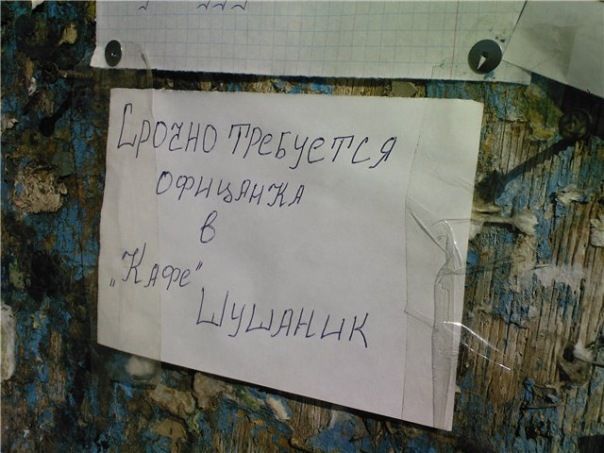 Срочно требуется
официанка
в
„Кафе"
Шушаник